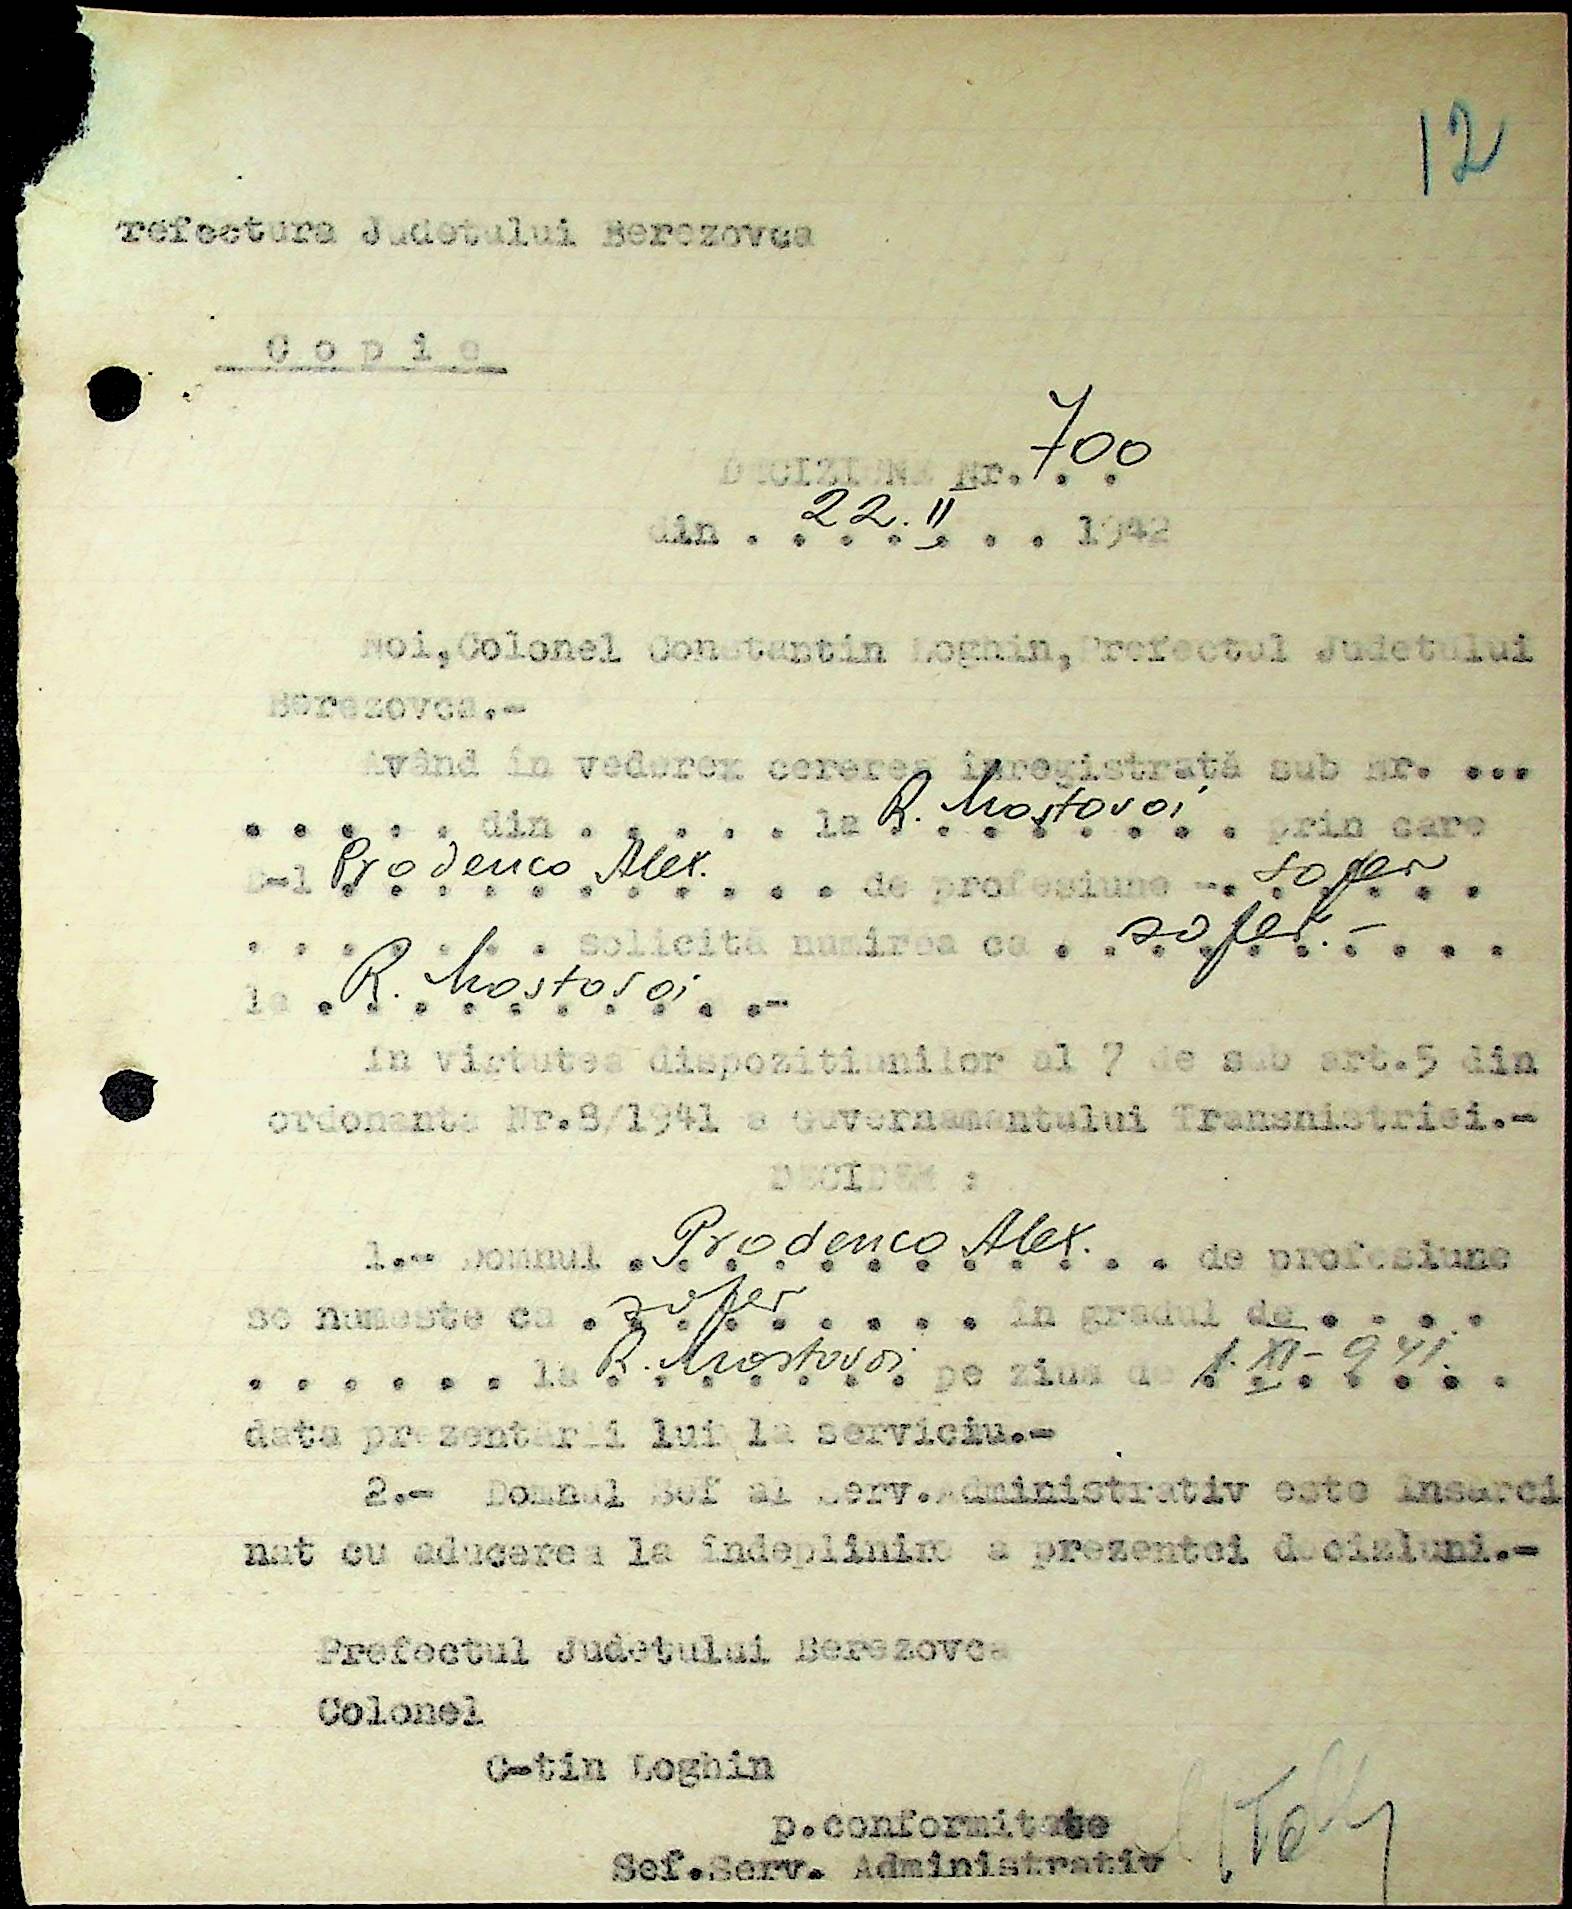 12
refectura Judetului Berezovca
C o p i e
DECIZIUNE Nr. 700 . .
din . 22.II . . . 1942
Noi,Colonel Constantin Loghin,Prefectul Judetului
Berezovca.-
Având în vederex cererea înregistrată sub nr. ...
. . . . . din . . . . . la R. Mostovoi . prin care
D-l Prodenco Alex. . . . de profesiune -. sofer .
. . . . . . . solicită numirea ca . sofer.- . . .
la . R. Mostovoi . .-
In virtutea dispozitiunilor al 7 de sub art.5 din
ordonanta Nr.8/1941 a Guvernamantului Transnistriei.-
DECIDEM :
1.- Domnul . Prodenco Alex. . . de profesiune
se numeste ca . sofer . . . . în gradul de . . . .
. . . . . . la R. Mostovoi pe ziua de 1.XI-941. .
data prezentării lui la serviciu.-
2.- Domnul Sef al Serv.Administrativ este însarci
nat cu aducerea la îndeplinire a prezentei deciziuni.-
Prefectul Judetului Berezovca
Colonel
C-tin Loghin
p.conformitate
Sef.Serv. Administrativ